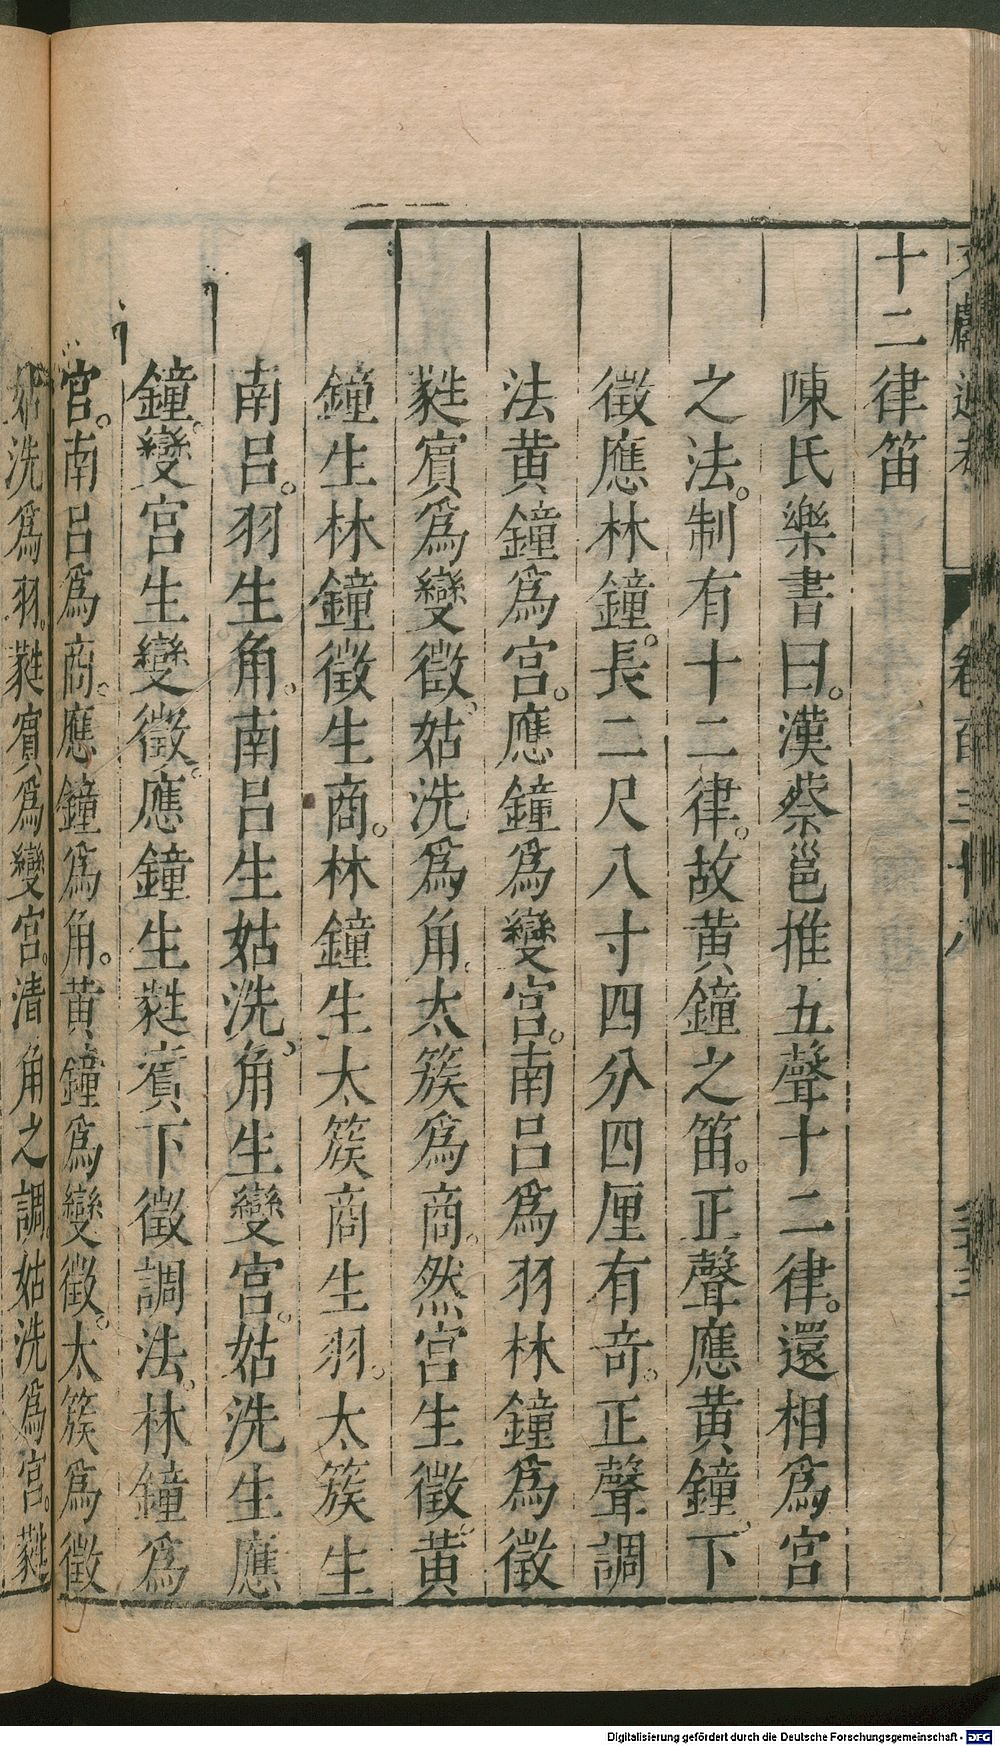 十二律笛
陳氏樂書曰。漢蔡邕推五聲十二律。還相爲宮
之法。制有十二律。故黃鐘之笛。正聲應黃鐘、下
徵應林鐘。長二尺八寸四分四厘有奇。正聲調
法黃鐘爲宮。應鐘爲變宮。南呂爲羽林鐘爲徵
蕤賓爲變徵。姑洗爲角。太簇爲商。然宮生徵。黃
鐘生林鐘徵生商。林鐘生太簇商生羽。太簇生
南呂。羽生角。南呂生姑洗。角生變宮。姑洗生應
鐘。變宮生變徵。應鐘生蕤賓下徵調法。林鐘爲
宮。南呂爲商。應鐘爲角。黃鐘爲變徵。太簇爲徵
姑洗爲羽。蕤賓爲變宮。清角之調。姑洗爲宮。蕤
Digitalisierung gefördert durch die Deutsche Forschungsgemeinschaft - DFG